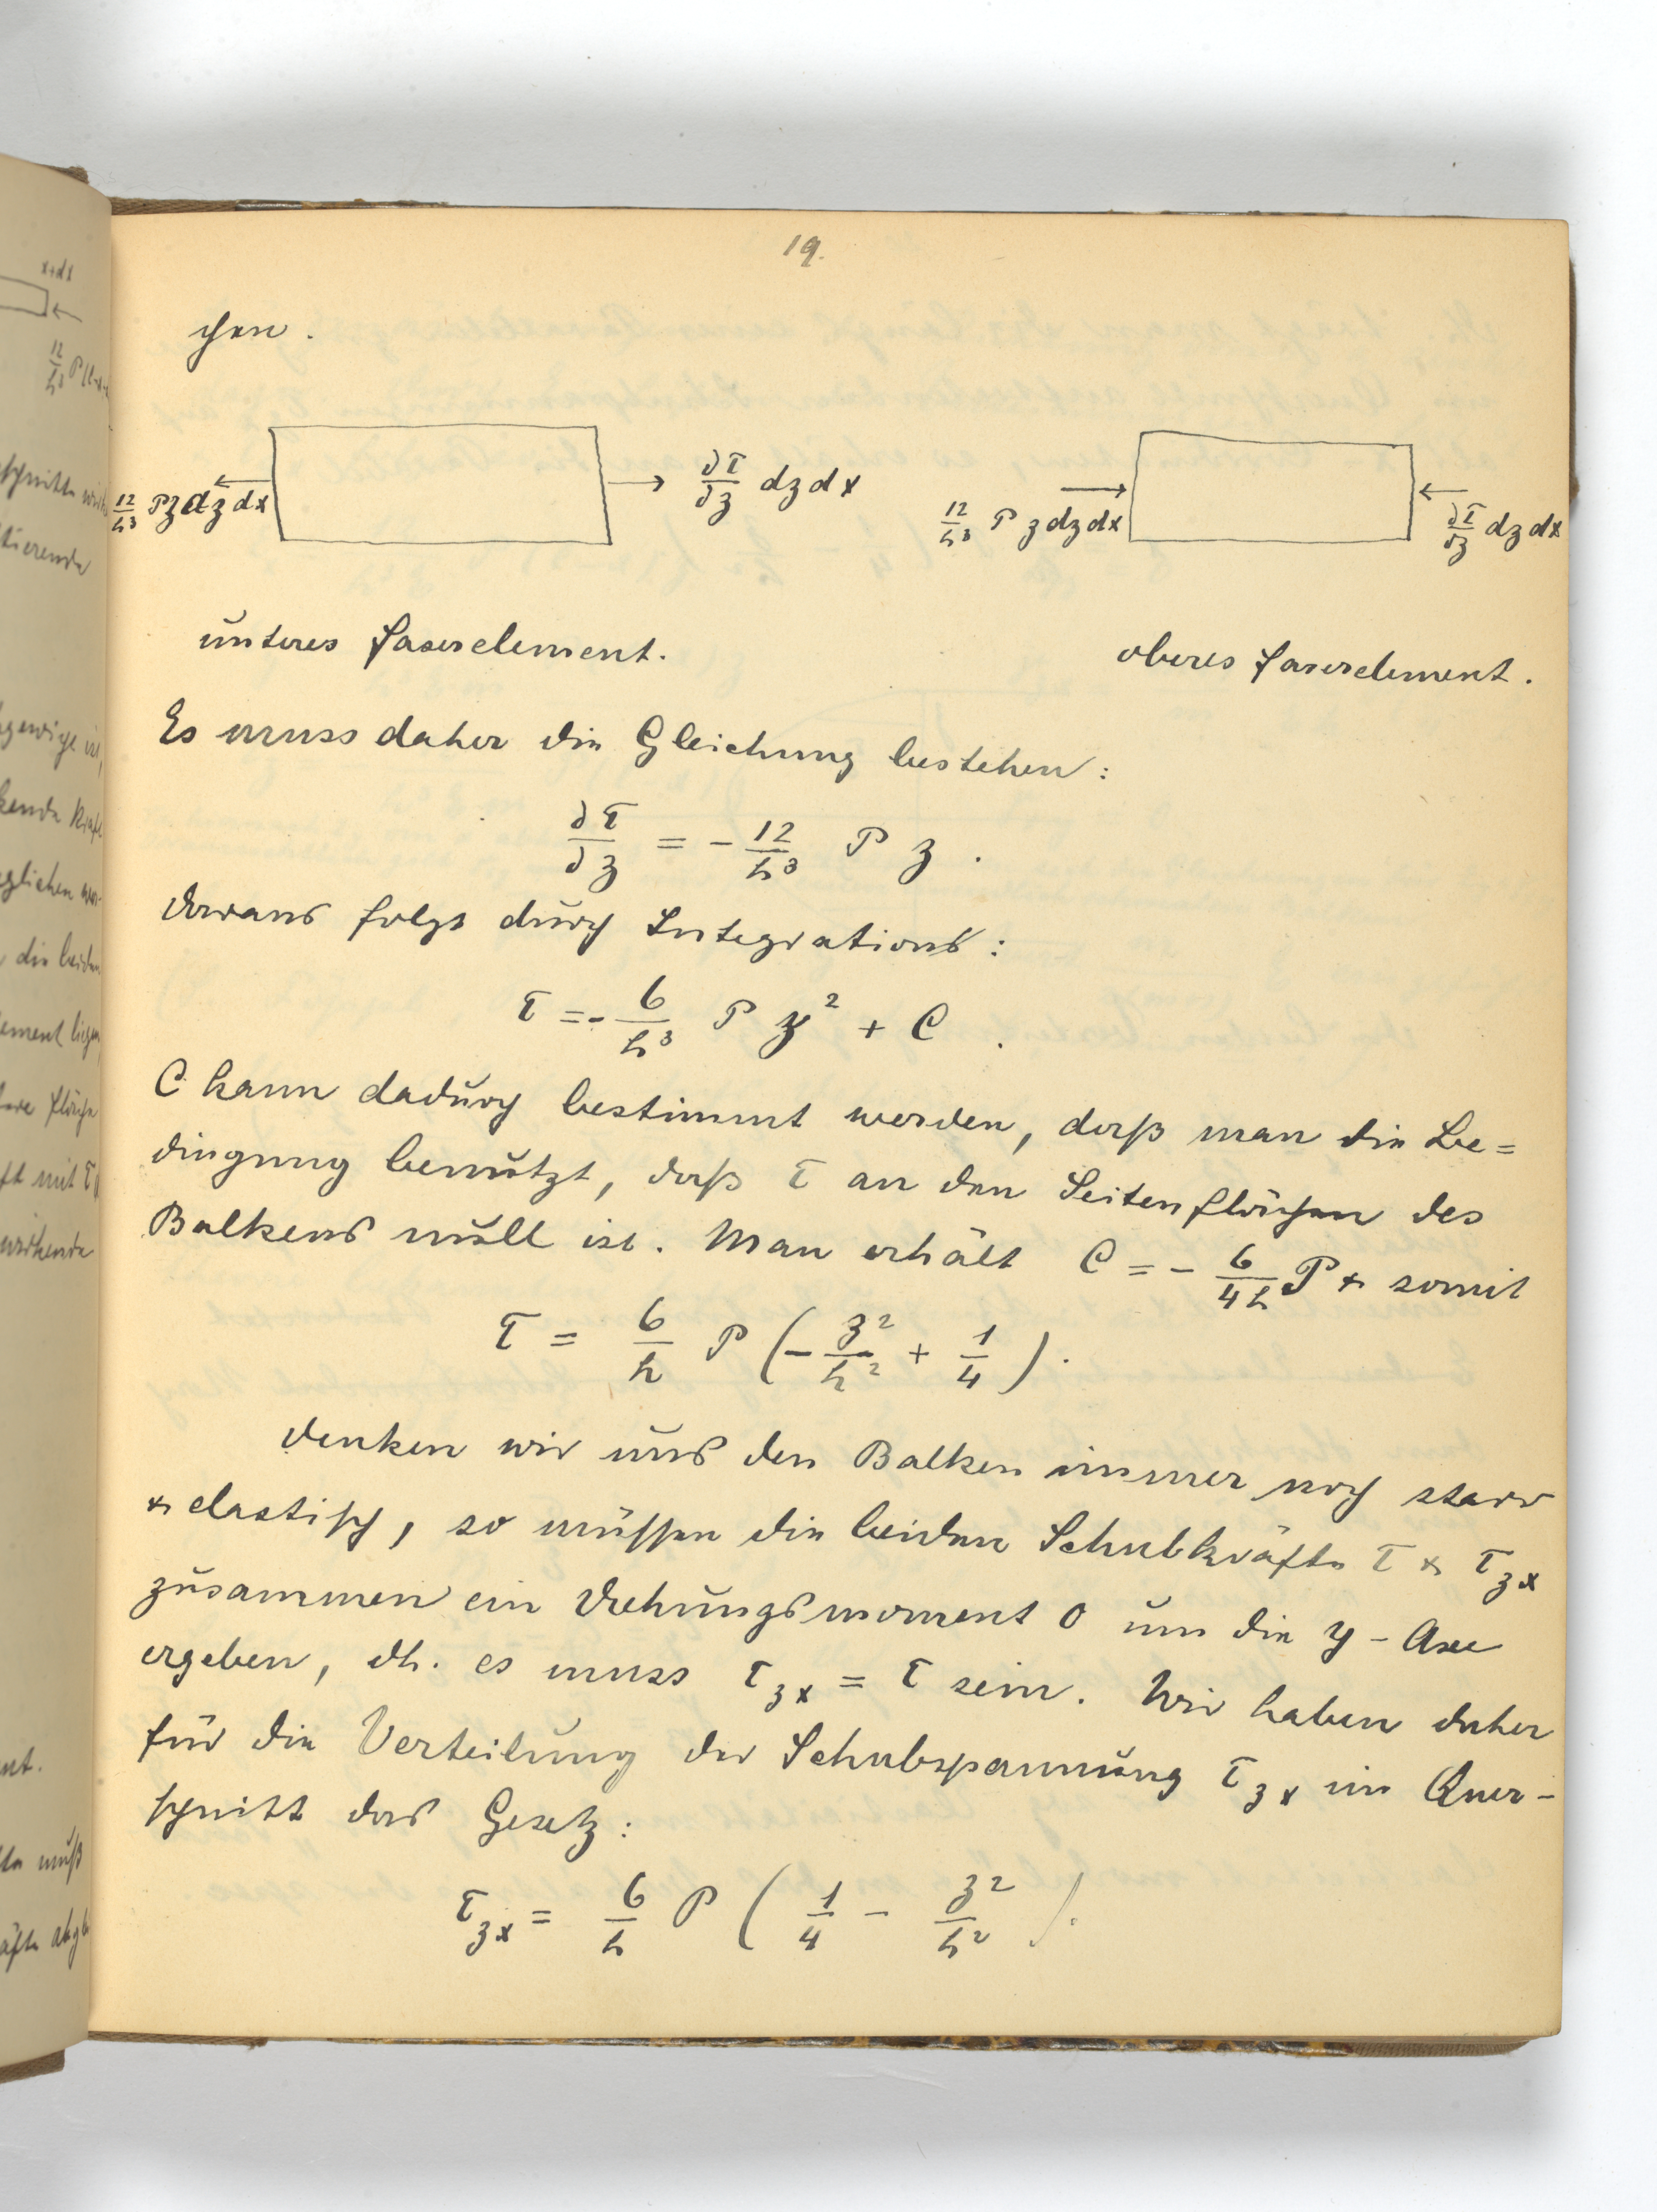 19.
chen.
12/h³ Pz dz dx ∂τ/∂z dz dx 12/h³ P z dz dx ∂τ/∂z dz dx
unteres Faserelement. oberes Faserelement.
Es muss daher die Gleichung bestehen:
∂τ/∂z = - 12/h³ P z .
Daraus folgt durch Integrations:
τ = - 6/h³ P z² + C .
C kann dadurch bestimmt werden, daß man die Be=
dingung benützt, daß τ an den Seitenflächen des
Balkens null ist. Man erhält C = - 6/4h P & somit
τ = 6/h P ( - z²/h² + 1/4 ).
Denken wir uns den Balken immer noch starr
& elastisch, so müssen die beiden Schubkräfte τ & τzx
zusammen ein Drehungsmoment 0 um die y - Axe
ergeben, dh. es muss τzx = τ sein. Wir haben daher
für die Verteilung der Schubspannung τzx im Quer-
schnitt das Gesetz:
τzx = 6/h P ( 1/4 - z²/h² ).
x+dx
12/h³ P(l-x-
schnitte
tierende
kende Kraft
eglichen
die beiden
ement liegen
ere Fläche
ft mit τ
wirkende
nt.
muß
äfte